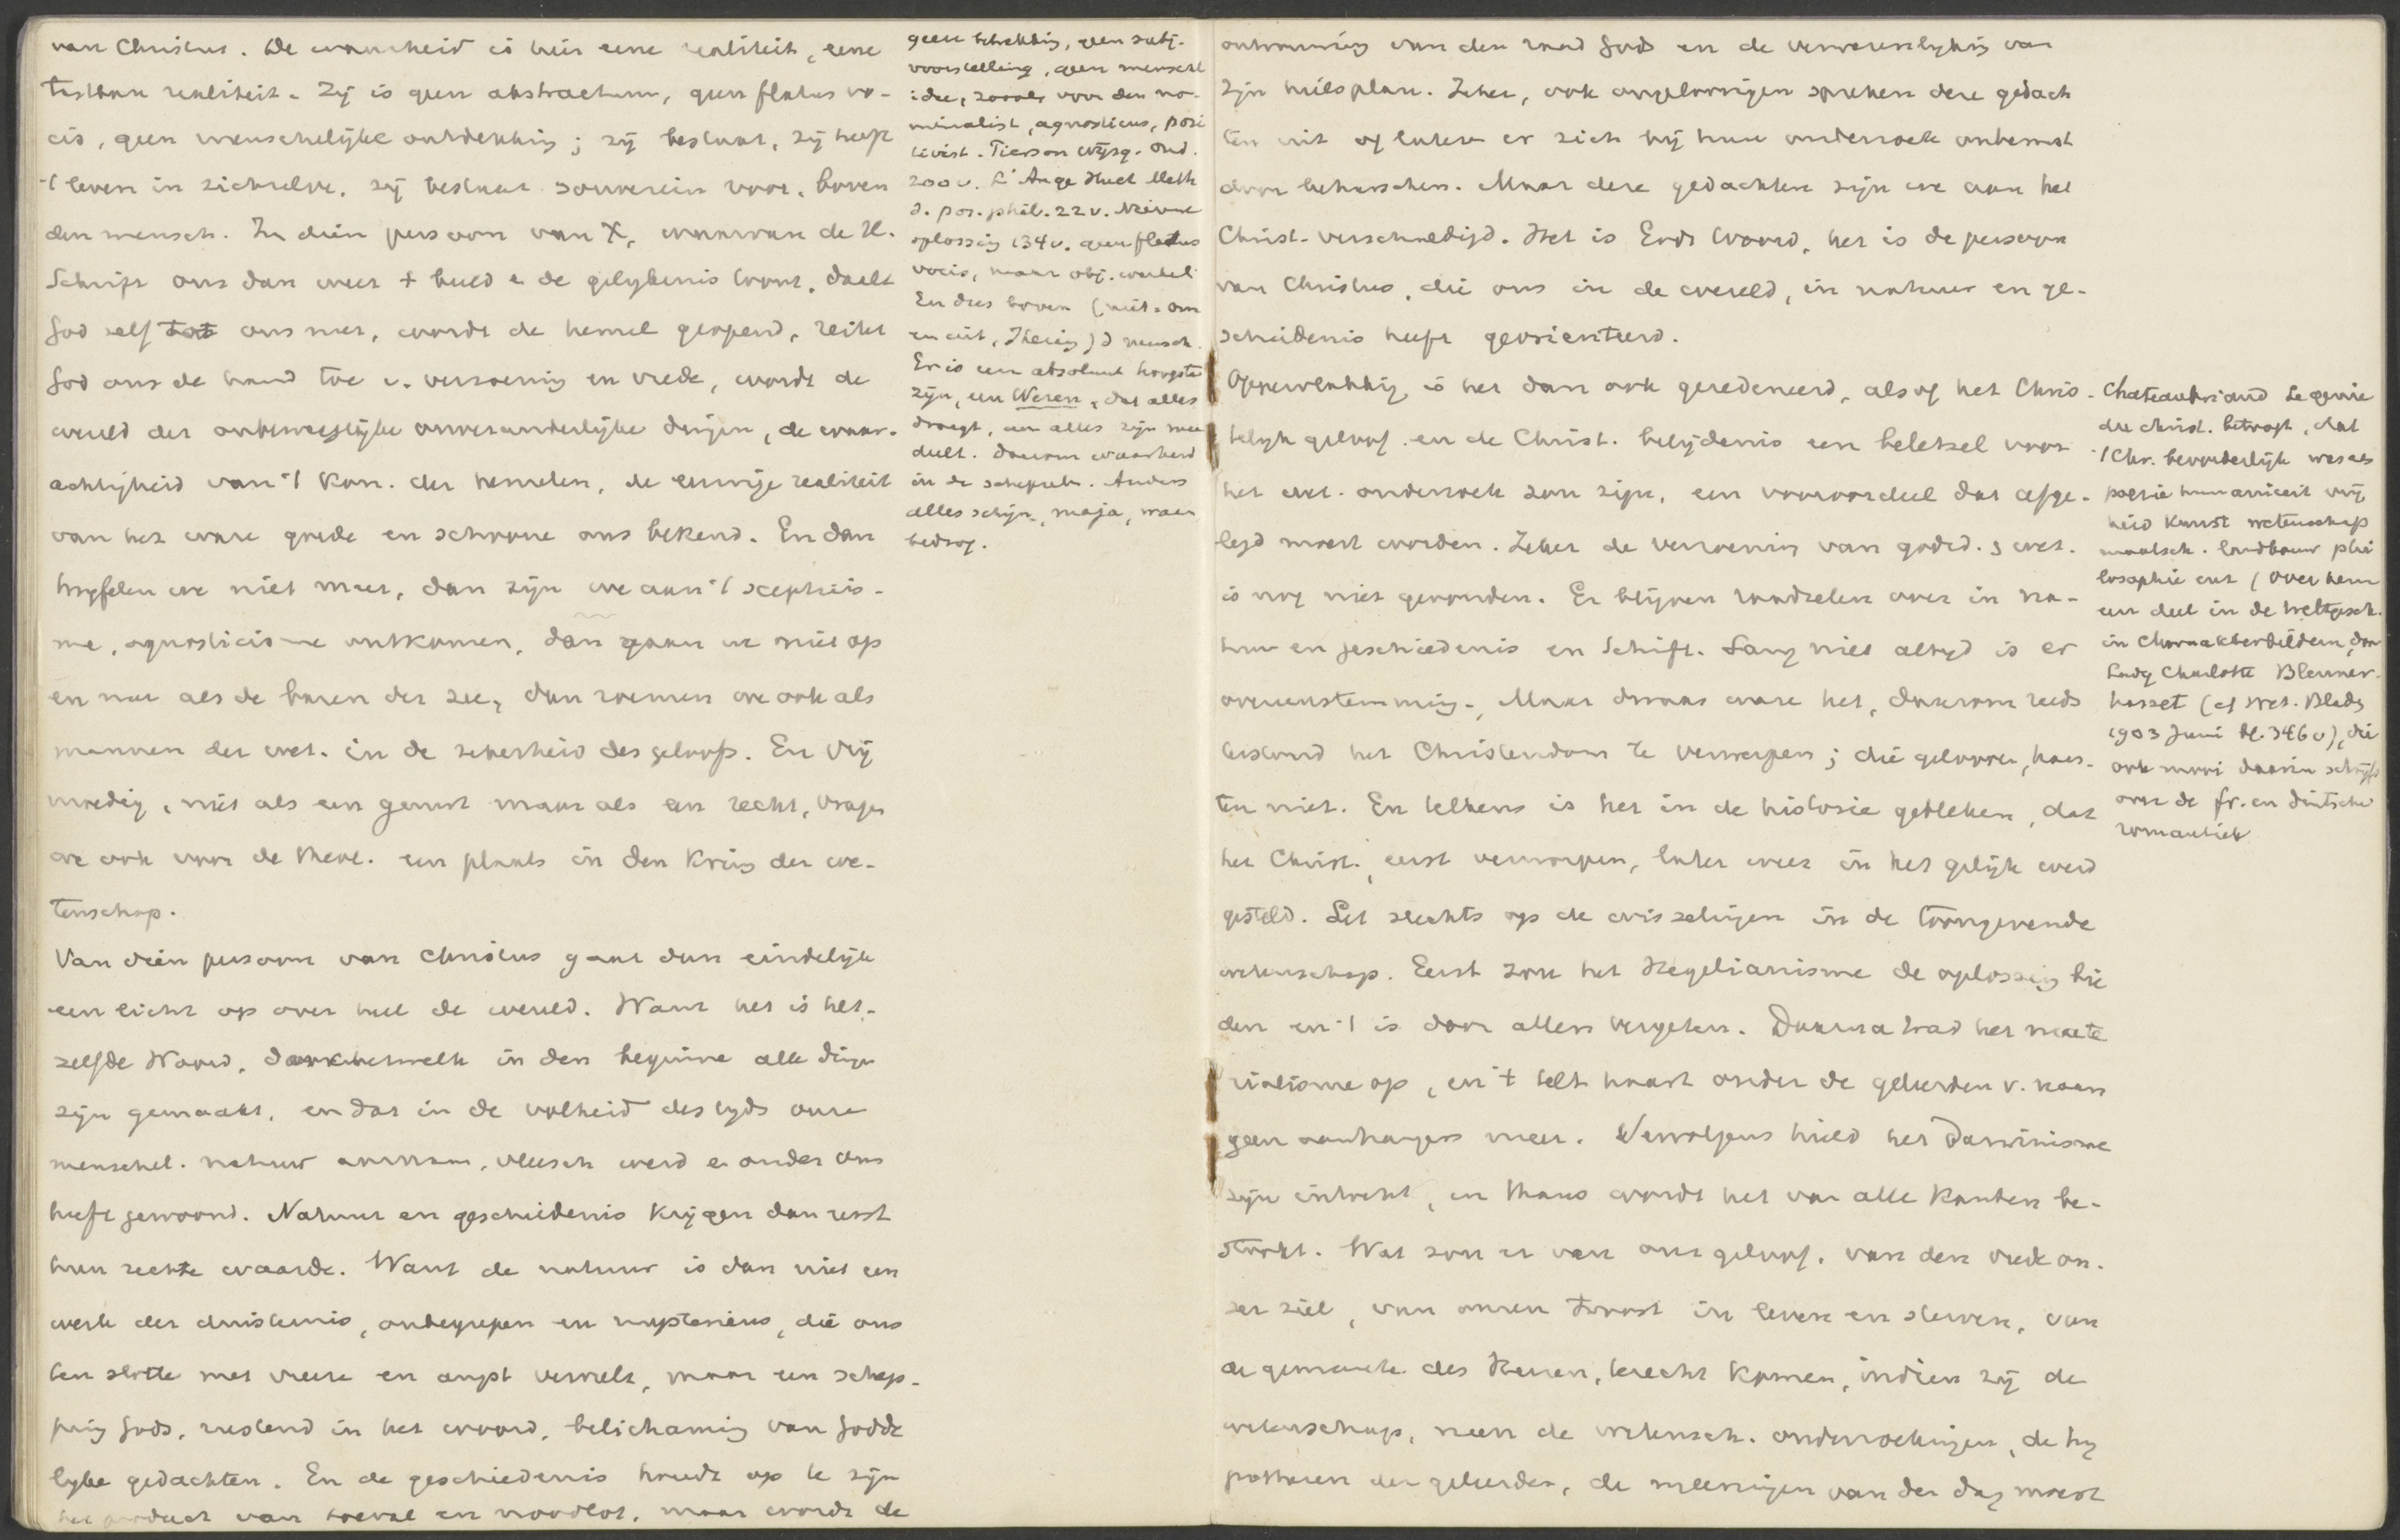 van Christus. De waarheid is hier eene realiteit, eene
tastbare realiteit. Zij is geen abstractum, geen flatus vo-
cis, geen menschelijke ontdekking; zij bestaat, zij heeft
't leven in zichzelve, zij bestaat souverein voor, boven
den mensch. In dien persoon van X, waarvan de H.
Schrift ons dan weer 't beeld & de gelykenis toont, daalt
God zelf tot ons neer, wordt de hemel geopend, reikt
God ons de hand toe v. verzoening en vrede, wordt de
wereld der onbeweeglijke onveranderlijke dingen, de waar-
achtigheid van 't Kon. der hemelen, de eeuwige realiteit
van het ware goede en schoone ons bekend. En dan
twyfelen we niet meer, dan zijn we aan 't scepticis-
me, agnosticisme ontkomen, dan gaan we niet op
en neer als de baren der zee, dan roemen we ook als
mannen der wet. in de zekerheid des geloofs. En vrij
moedig, niet als een gunst maar als een recht, vragen
we ook voor de theol. een plaats in den Kring der we-
tenschap.
Van dien persoon van Christus gaat dan eindelijk
een licht op over heel de wereld. Want het is het-
zelfde Woord, door hetwelk in den beginne alle dingen
zijn gemaakt, en dat in de volheid des tyds onze
menschel. natuur aannam, vleesch werd & onder ons
heeft gewoond. Natuur en geschiedenis krijgen dan eerst
hun rechte waarde. Want de natuur is dan niet een
werk der duisternis, onbegrepen en mysterieus, die ons
ten slotte met vreeze en angst vervult, maar een schep-
ping Gods, rustend in het woord, belichaming van Godde
lyke gedachten. En de geschiedenis houdt op te zijn
het product van toeval en noodlot, maar wordt de
geen betrekking, geen subj.
voorstelling, geen menschl
idee, zooals voor den no-
minalist, agnosticus, posi
tivist. Pierson Wijsg. Ond.
200 v. L'Ange Huet Meth
d. pos. phil. 22 v. Nieuwe
oplossing 134 v. geen flatus
vocis, maar obj. werkel.
En dus boven (niet om
en uit, ) d mensch.
Er is een absoluut hoogste
zijn, een Wezen, dat alles
draagt, aan alles zijn mee
deelt. Daarom waarheid
in de schepsels. Anders
alles schijn, maja, waan
bedrog.
ontvouwing van den raad Gods en de verwezenlyking van
Zijn heilsplan. Zeker, ook ongeloovigen spreken deze gedach
ten uit of laten er zich bij hun onderzoek onbewust
door beheerschen. Maar deze gedachten zijn we aan het
Christ. verschuldigd. Het is Gods Woord, het is de persoon
van Christus, die ons in de wereld, in natuur en ge-
schiedenis heeft georienteerd.
Oppervlakkig is het dan ook geredeneerd, alsof het Chris-
telijk geloof en de Christ. belijdenis een beletsel voor
het wet. onderzoek zou zijn, een vooroordeel dat afge-
legd moest worden. Zeker de verzoening van godsd. & wet.
is nog niet gevonden. Er blijven raadselen over in na-
tuur en geschiedenis en Schrift. Lang niet altyd is er
overeenstemming. Maar dwaas ware het, daarom reeds
terstond het Christendom te verwerpen; die gelooven, haas-
ten niet. En telkens is het in de historie gebleken, dat
het Christ., eerst verworpen, later weer in het gelijk werd
gesteld. Let slechts op de wisselingen in de toongevende
wetenschap. Eerst zou het Hegelianisme de oplossing bie
den en 't is door allen vergeten. Daarna trad het mate
rialisme op, en 't telt haast onder de geleerden v. naam
geen aanhangers meer. Vervolgens hield het Darwinisme
zijn intocht, en thans wordt het van alle kanten be-
stookt. Wat zou er van ons geloof, van den vrede on-
zer ziel, van onzen troost in leven en sterven, van
de gemeente des Heeren, terecht komen, indien zij de
wetenschap, neen de wetensch. onderzoekingen, de hy
pothesen der geleerden, de meeningen van den dag moest
Chateaubriand Le genie
du christ. betoogt, dat
't Chr. bevorderlijk was als
poezie humaniteit vrij
heid Kunst wetenschap
maatsch. landbouw phi
losophie enz (over hem
een deel in de Weltgesch.
in Charakterbildern, door
Lady Charlotte Blenner-
hasset (cf Wet. Bladz
1903 Juni bl. 346 v), die
ook mooi daarin schrijft
over de fr. en duitsche
romantiek